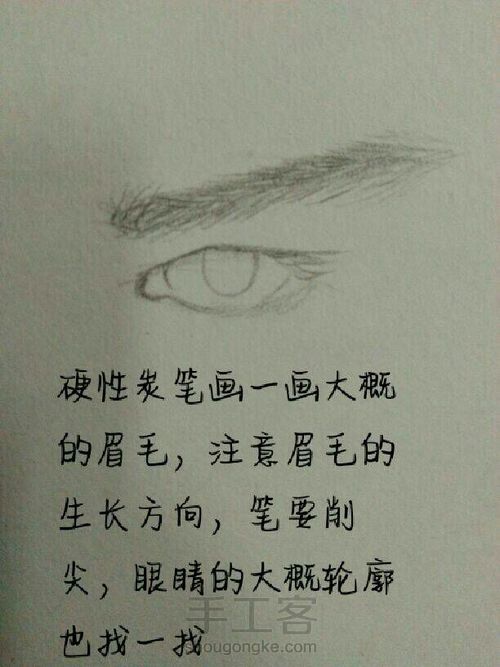 硬性炭笔画一画大概
的眉毛，注意眉毛的
生长方向，笔要削
尖，眼睛的大概轮廓
也找一找
手工客
shougongke.com